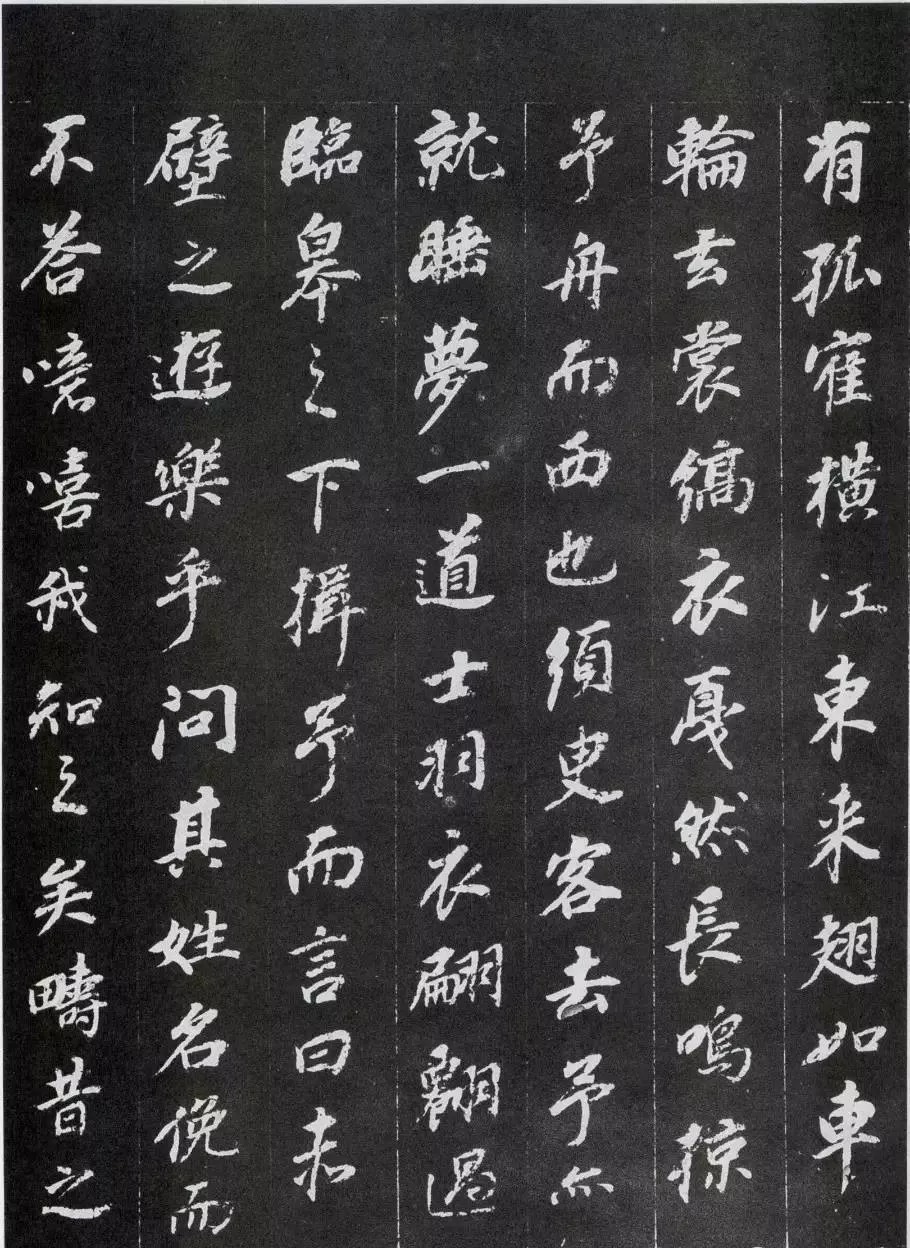 有孤寉橫江東来翅如車
輪玄裳縞衣戛然長鳴掠
予舟而西也須臾客去予亦
就睡夢一道士羽衣翩飜過
臨皋之下揖予而言曰赤
壁之遊樂乎問其姓名俛而
不答噫嘻我知之矣疇昔之